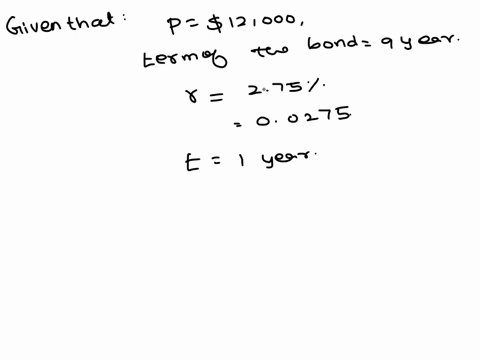 Given that: P = $12,000,
term of the bond = 9 year.
r = 2.75%.
= 0.0275
t = 1 year.